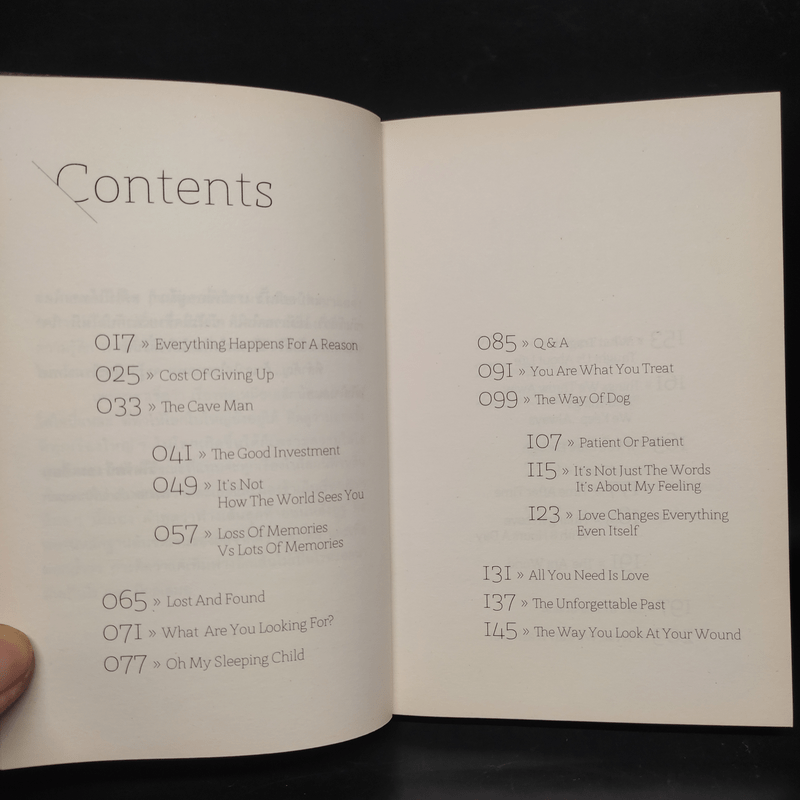 Contents
017 » Everything Happens For A Reason
025 » Cost Of Giving Up
033 » The Cave Man
041 » The Good Investment
049 » It's Not
How The World Sees You
057 » Loss Of Memories
Vs Lots Of Memories
065 » Lost And Found
071 » What Are You Looking For?
077 » Oh My Sleeping Child
085 » Q & A
091 » You Are What You Treat
099 » The Way Of Dog
107 » Patient Or Patient
115 » It's Not Just The Words
It's About My Feeling
123 » Love Changes Everything
Even Itself
131 » All You Need Is Love
137 » The Unforgettable Past
145 » The Way You Look At Your Wound